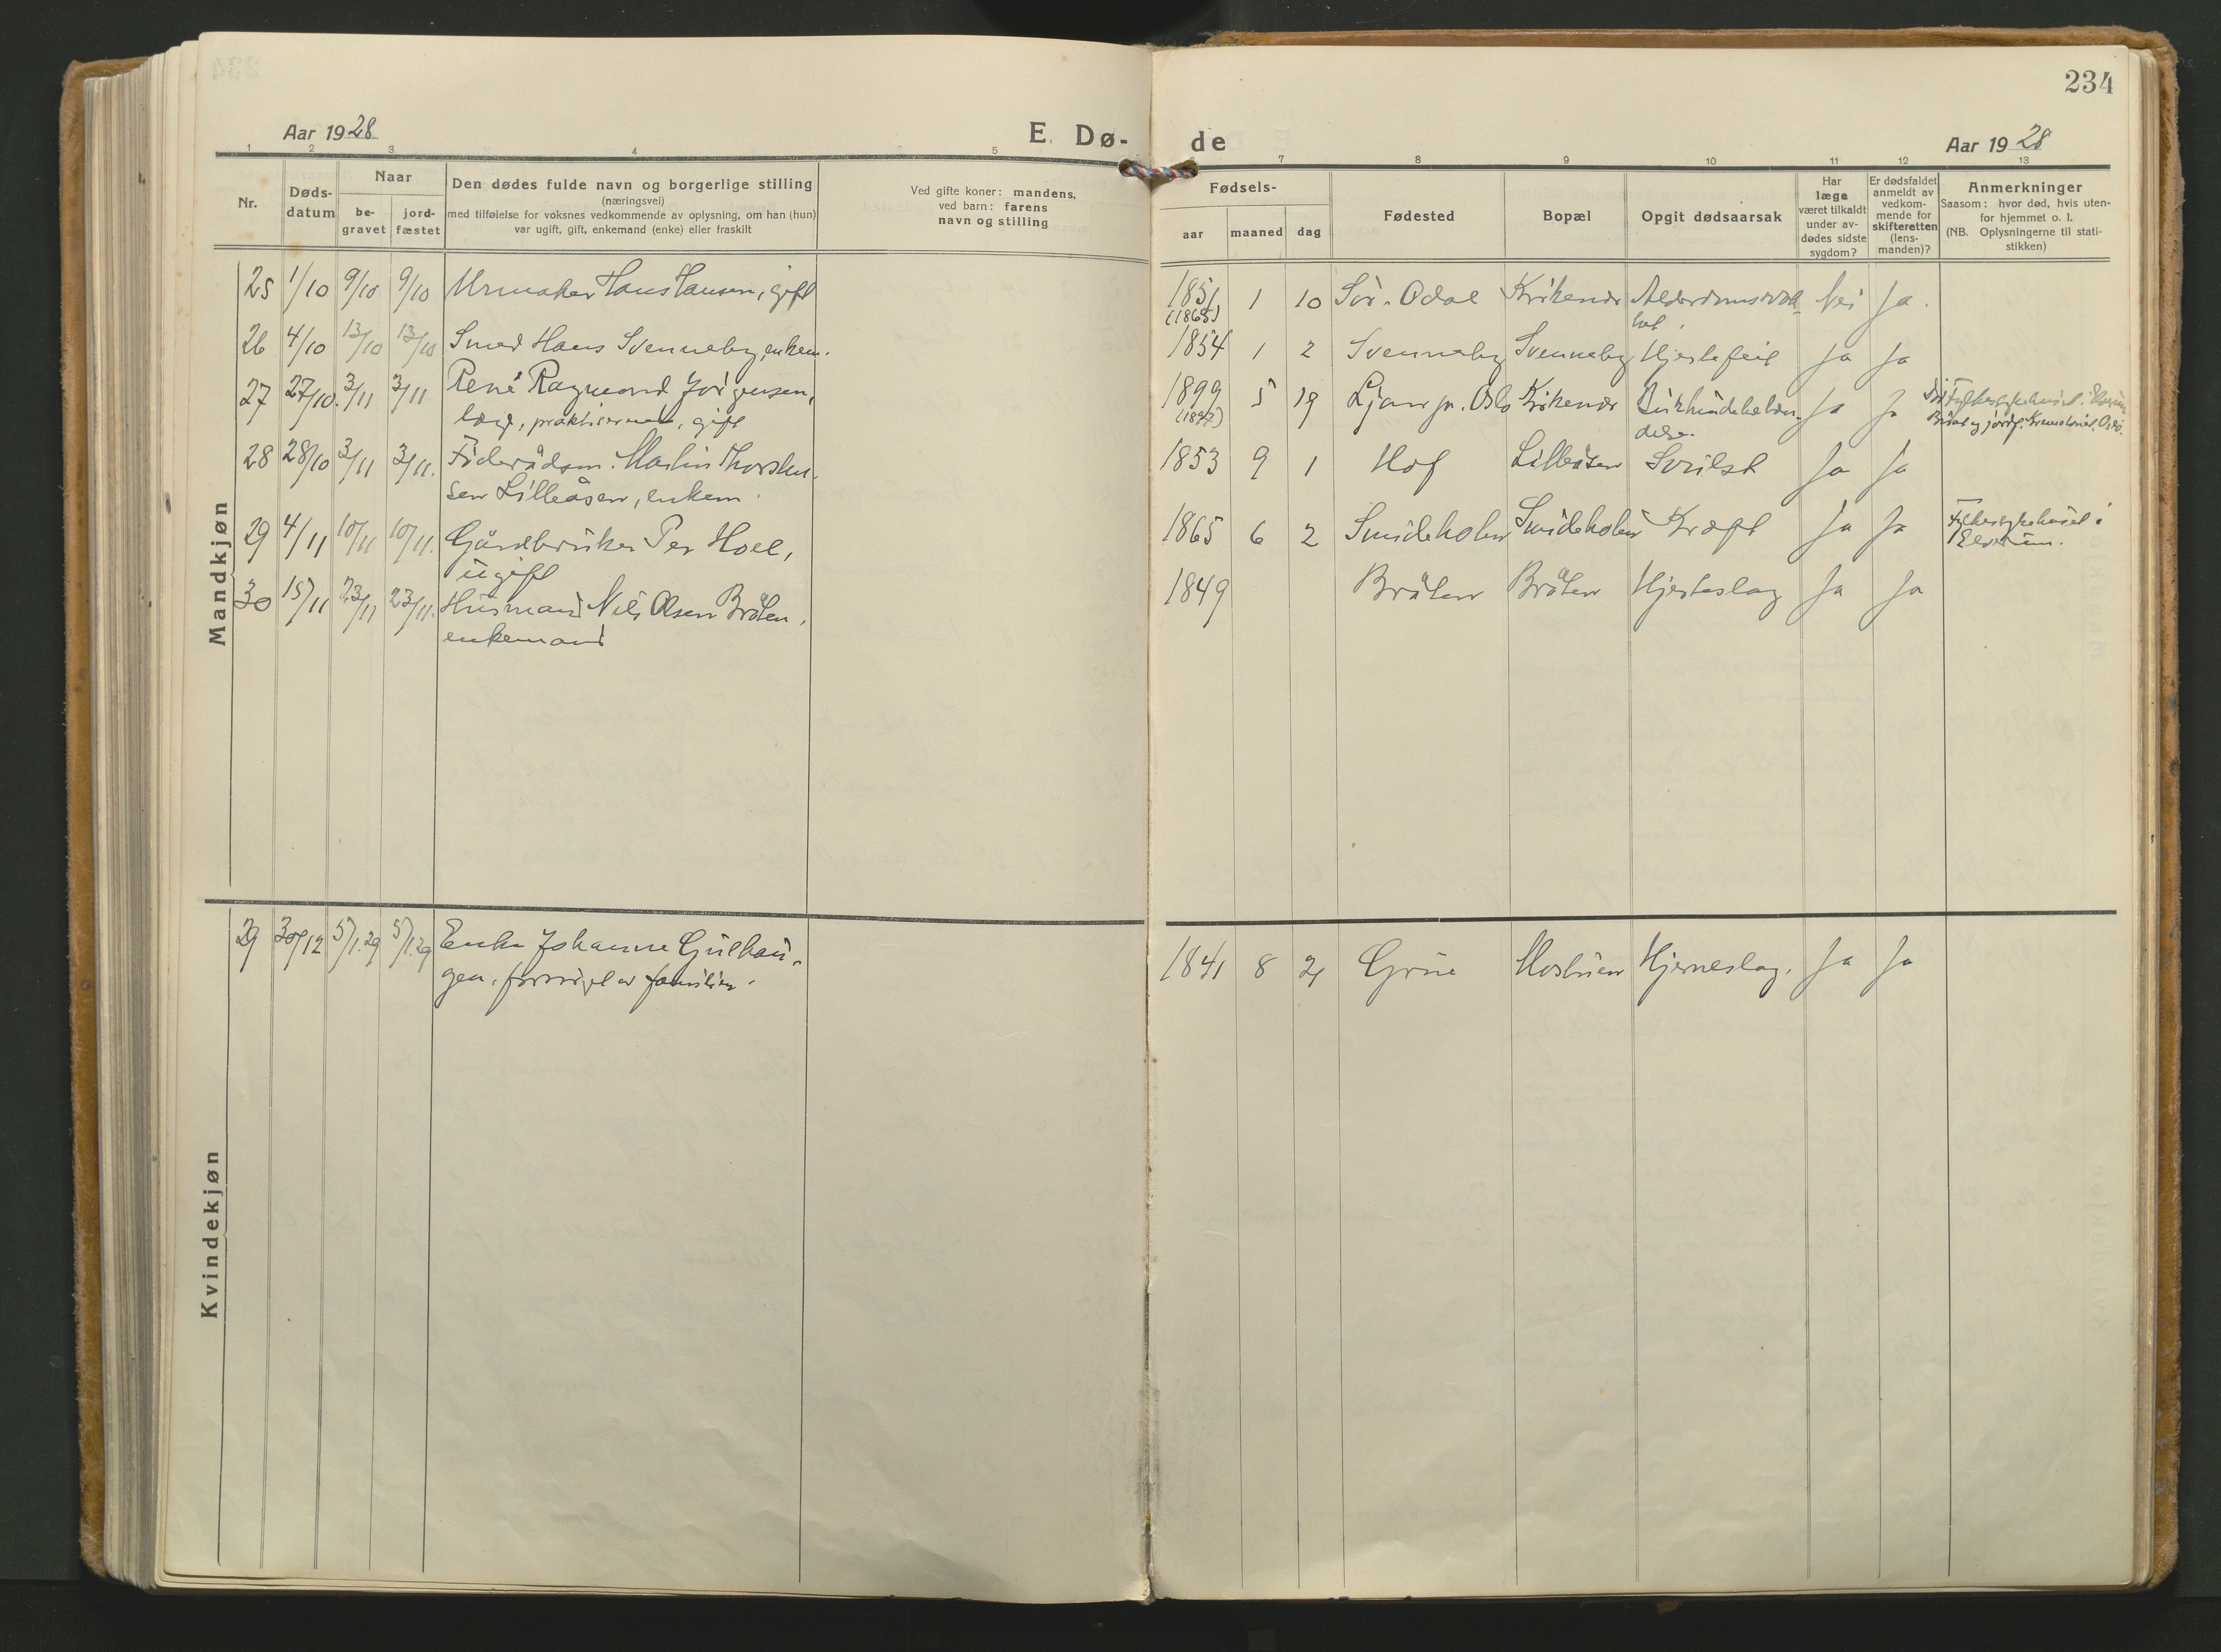 234
Aar 1928
E. Dø-
de
Aar 1928
1 2 3 4 5 7 8 9 10 11 12 13
Nr.
Døds-
datum
Naar
be-
gravet
jord-
fæstet
Den dødes fulde navn og borgerlige stilling
(næringsvei)
med tilføielse for voksnes vedkommende av oplysning, om han (hun)
var ugift, gift, enkemand (enke) eller fraskilt
Ved gifte koner: mandens,
ved barn: farens
navn og stilling
Fødsels-
aar
maaned
dag
Fødested
Bopæl
Opgit dødsaarsak
Har
læge
været tilkaldt
under av-
dødes sidste
sygdom?
Er dødsfaldet
anmeldt av
vedkom-
mende for
skifteretten
(lens-
manden)?
Anmerkninger
Saasom: hvor død, hvis uten-
for hjemmet o. l.
(NB. Oplysningerne til stati-
stikken)
Mandkjøn
25 1/10 9/10 9/10 Urmaker Hans Hansen, gift 1851 1 10 Sör-Odal Kirkenær Nei Ja.
26 4/10 13/10 13/10 Smed Hans Svenneby, enkem. 1854 1 2 Svenneby Svenneby Hjertefeil Ja Ja
27 27/10. 3/11 3/11 René Raymond Jörgensen, 1899 5 19 Ljan pr. Oslo Kirkenær Ja Ja
læge, praktiserende, gift
28 28/10 3/11 3/11. Föderådsm. Martin Thorsten- 1853 9 1 Hof Lilleåsen Ja Ja
sen Lilleåsen, enkem.
29 4/11 10/11 10/11. Gårdbruker Per Hoel, 1865 6 2 Smideholen Smideholen Kræft Ja Ja Fylkessykehuset i
ugift Elverum.
30 15/11 23/11 23/11. Husmand Nils Olsen Bråten, 1849 Bråten Bråten Hjerteslag Ja Ja
enkemand
Kvindekjøn
29 30/12 5/1.29 5/1.29 Enke Johanne Gulhau- 1841 8 Grue Hjerneslag. Ja Ja
gen, forsörget av familien.